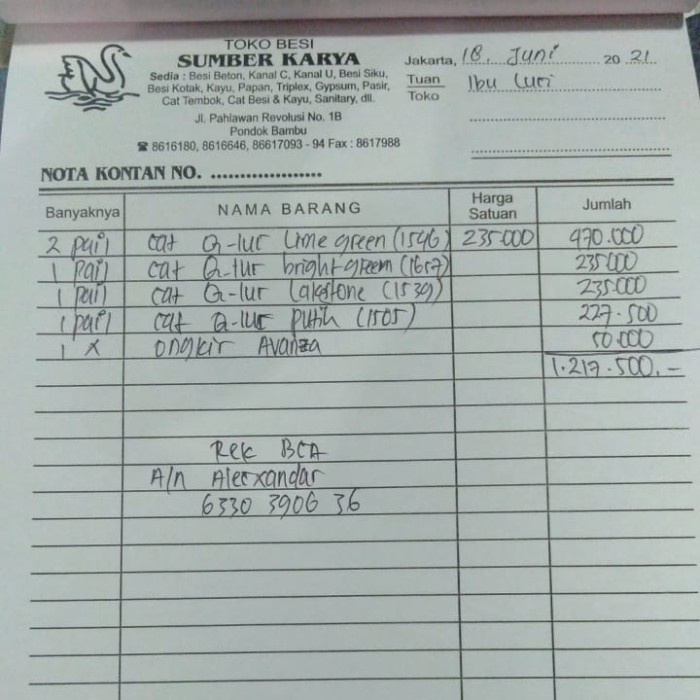 TOKO BESI
SUMBER KARYA
Sedia : Besi Beton, Kanal C, Kanal U, Besi Siku,
Besi Kotak, Kayu, Papan, Triplex, Gypsum, Pasir,
Cat Tembok, Cat Besi & Kayu, Sanitary, dll.
Jl. Pahlawan Revolusi No. 1B
Pondok Bambu
☎ 8616180, 8616646, 86617093 - 94 Fax : 8617988
Jakarta, 18 Juni 2021
Tuan
Toko
Ibu Luci
NOTA KONTAN NO. ....................
Banyaknya NAMA BARANG Harga Satuan Jumlah
2 pail cat Q-lur Lime green (1546) 235.000 470.000
1 pail cat Q-lur bright green (1657) 235.000
1 pail cat Q-lur Lakestone (1539) 235.000
1 pail cat Q-lur putih (1505) 227.500
1 x ongkir Avanza 50.000
1.217.500,-
Rek BCA
A/n Alexxandar
6330 3906 36